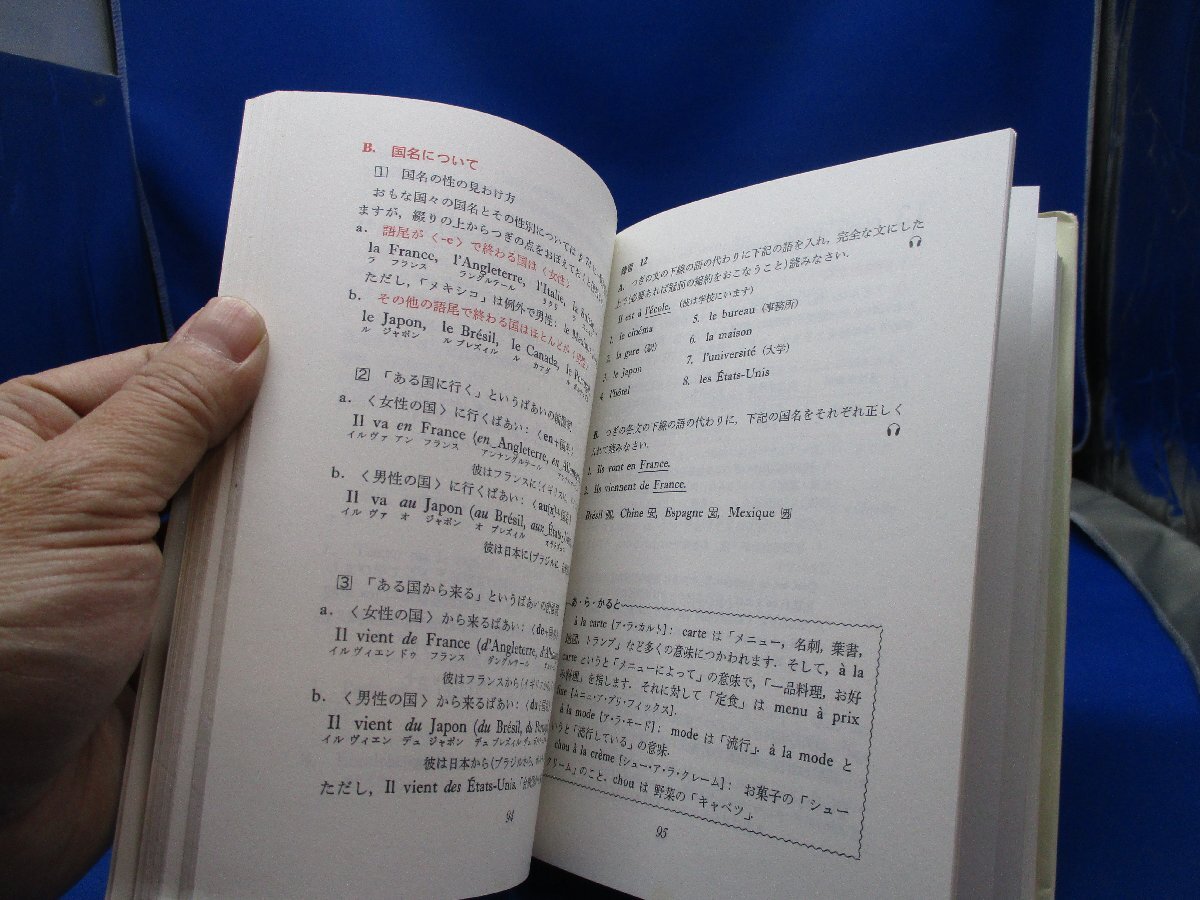 B. 国名について
1 国名の性の見わけ方
おもな国々の国名とその性別については
ますが，綴りの上からつぎの点をおぼえて
a. 語尾が〈-e〉で終わる国は〈女性〉
la France, l'Angleterre, l'Italie, la
ラ フランス ラングルテール
ただし，「メキシコ」は例外で男性：le
b. その他の語尾で終わる国はほとんどが
le Japon, le Brésil, le Canada, le
ル ジャポン ル ブレズィル ル カナダ ル
2 「ある国に行く」というばあいの
a. 〈女性の国〉に行くばあい：〈en+国名〉
Il va en France (en Angleterre, en
イル ヴァ アン フランス アンナングルテール
彼はフランスに(イギリスに，
b. 〈男性の国〉に行くばあい：〈au[x]+国名〉
Il va au Japon (au Brésil, aux États-
イル ヴァ オ ジャポン オ ブレズィル
彼は日本に(ブラジルに，
3 「ある国から来る」というばあいの
a. 〈女性の国〉から来るばあい：〈de+
Il vient de France (d'Angleterre,
イル ヴィエン ドゥ フランス ダングルテール
彼はフランスから(イギリス
b. 〈男性の国〉から来るばあい：〈du+
Il vient du Japon (du Brésil, du
イル ヴィエン デュ ジャポン デュ ブレズィル デュ
彼は日本から(ブラジルから，
ただし，Il vient des États-Unis.
94
12
A. つぎの文の下線の語の代わりに下記の語を入れ，完全な文にした
上で(必要あれば冠詞の縮約をおこなうこと)読みなさい．
Il est à l'école. (彼は学校にいます)
le cinéma 5. le bureau (事務所)
2. la gare (駅) 6. la maison
3. le Japon 7. l'université (大学)
4. l'hôtel 8. les États-Unis
B. つぎの各文の下線の語の代わりに，下記の国名をそれぞれ正しく
入れて読みなさい．
1. Ils vont en France.
2. Ils viennent de France.
Brésil 男, Chine 女, Espagne 女, Mexique 男
あ・ら・かると
à la carte [ア・ラ・カルト]： carte は「メニュー，名刺，葉書，
地図，トランプ」など多くの意味につかわれます．そして，à la
carte というと「メニューによって」の意味で，「一品料理，お好
み料理」を指します．それに対して「定食」は menu à prix
fixe [ムニュ・ア・プリ・フィックス].
à la mode [ア・ラ・モード]： mode は「流行」，à la mode と
いうと「流行している」の意味．
chou à la crème [シュー・ア・ラ・クレーム]： お菓子の「シュー
クリーム」のこと．chou は 野菜の「キャベツ」．
95